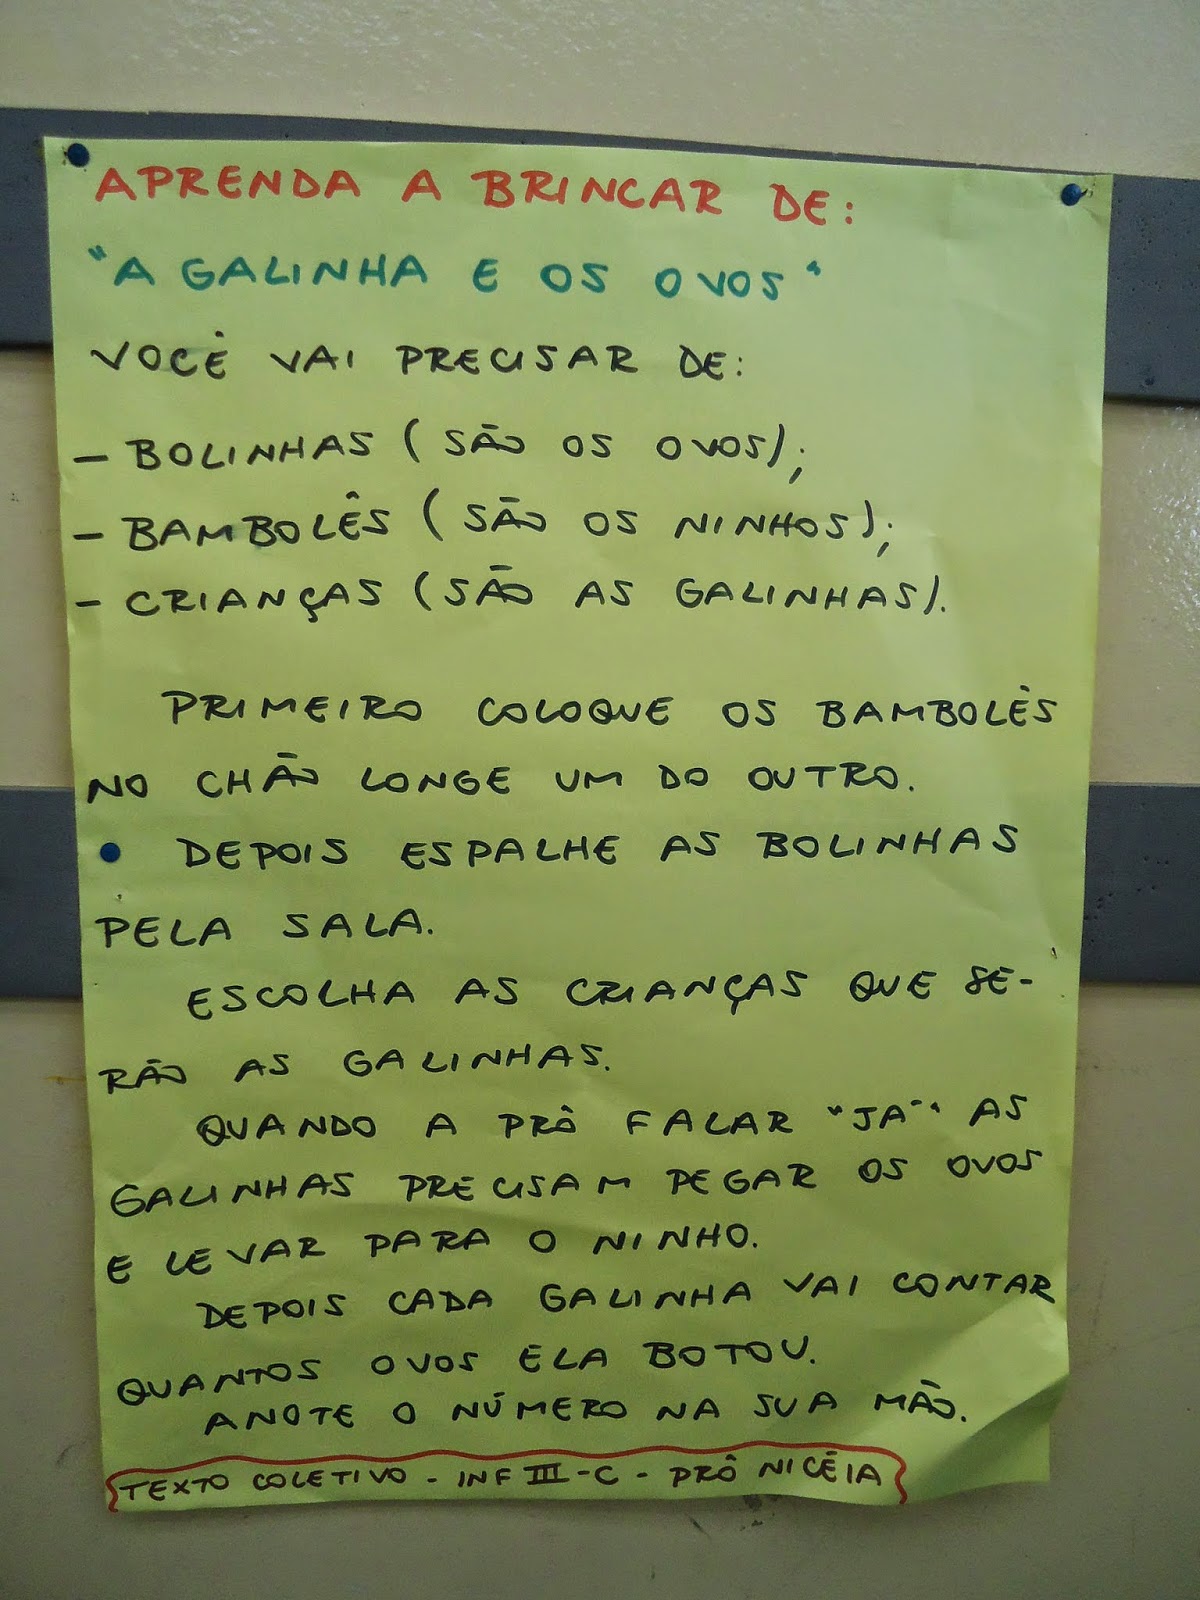 APRENDA A BRINCAR DE:
"A GALINHA E OS OVOS"
VOCÊ VAI PRECISAR DE:
- BOLINHAS (SÃO OS OVOS);
- BAMBOLÊS (SÃO OS NINHOS);
- CRIANÇAS (SÃO AS GALINHAS).
PRIMEIRO COLOQUE OS BAMBOLÊS
NO CHÃO LONGE UM DO OUTRO.
DEPOIS ESPALHE AS BOLINHAS
PELA SALA.
ESCOLHA AS CRIANÇAS QUE SE-
RÃO AS GALINHAS.
QUANDO A PRÔ FALAR "JÁ" AS
GALINHAS PRECISAM PEGAR OS OVOS
E LEVAR PARA O NINHO.
DEPOIS CADA GALINHA VAI CONTAR
QUANTOS OVOS ELA BOTOU.
ANOTE O NÚMERO NA SUA MÃO.
TEXTO COLETIVO - INF III-C - PRÔ NICÉIA